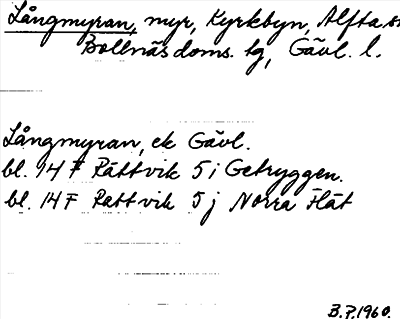 Långmyran, myr, Kyrkbyn, Alfta sn
Bollnäs doms. lg, Gävl. l.
Långmyran, ek Gävl.
bl. 14 F Rättvik 5 i Getryggen.
bl. 14 F Rättvik 5 j Norra Flät
B.P. 1960.